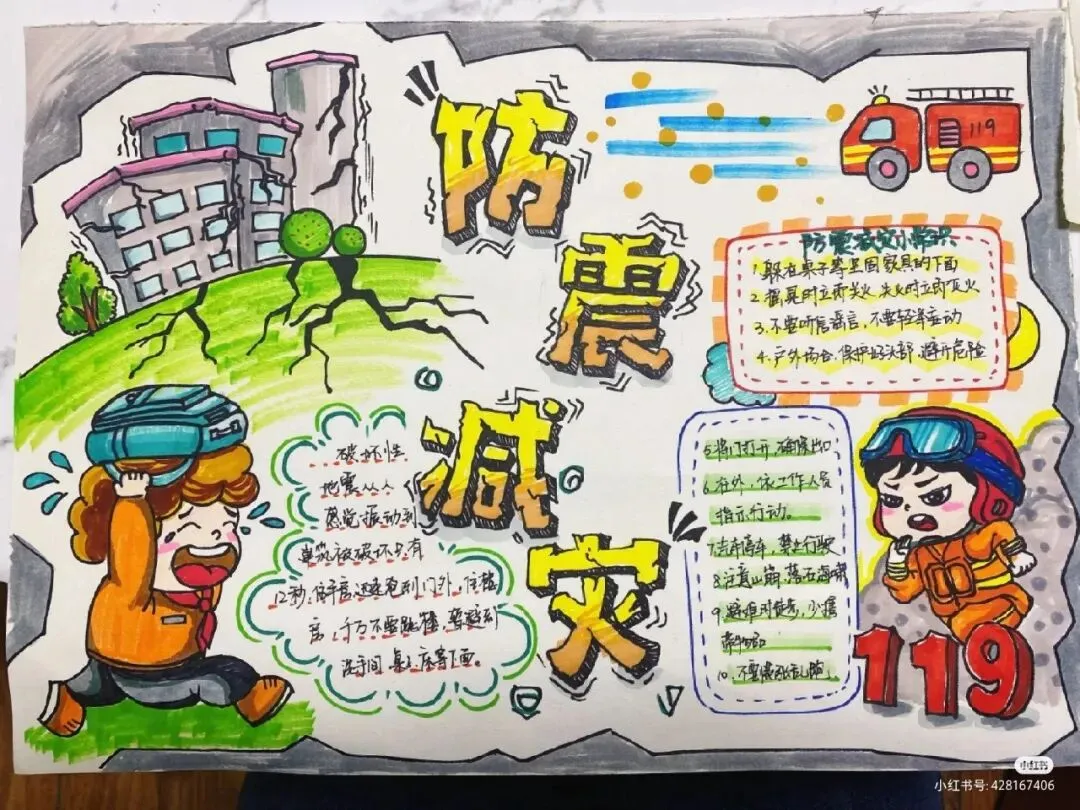 防震减灾
119
防震减灾小常识
1.躲在桌子等坚固家具的下面
2.摇晃时立即关火,失火时立即灭火
3.不要听信谣言,不要轻举妄动
4.户外场合,保护好头部,避开危险
5.将门打开,确保出口
6.在外,依工作人员
指示行动。
7.汽车停车,禁止行驶
8.注意山崩,落石海啸
9.避难时徒步,少携
带物品
10.不要慌张乱跑。
破坏性
地震从人
感觉振动到
建筑被破坏只有
12秒,住平房迅速跑到门外,住楼
房,千万不要跳楼,躲避到
洗手间 桌 床等下面。
119
小红书
小红书号: 428167406